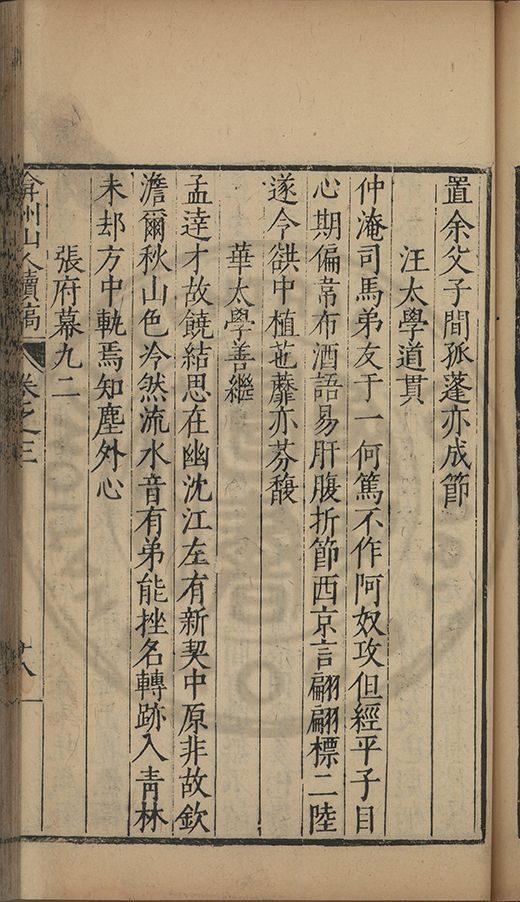 置余父子間孤蓬亦成節
汪太學道貫
仲淹司馬弟友于一何篤不作阿奴攻但經平子目
心期偏韋布酒語易肝腹折節西京言翩翩標二陸
遂令谼中植茝蘼亦芬馥
華太學善繼
孟達才故饒結思在幽沈江左有新契中原非故欽
澹爾秋山色泠然流水音有弟能挫名轉跡入青林
未却方中軌焉知塵外心
張府幕九二
弇州山人續稿 卷之三 十八